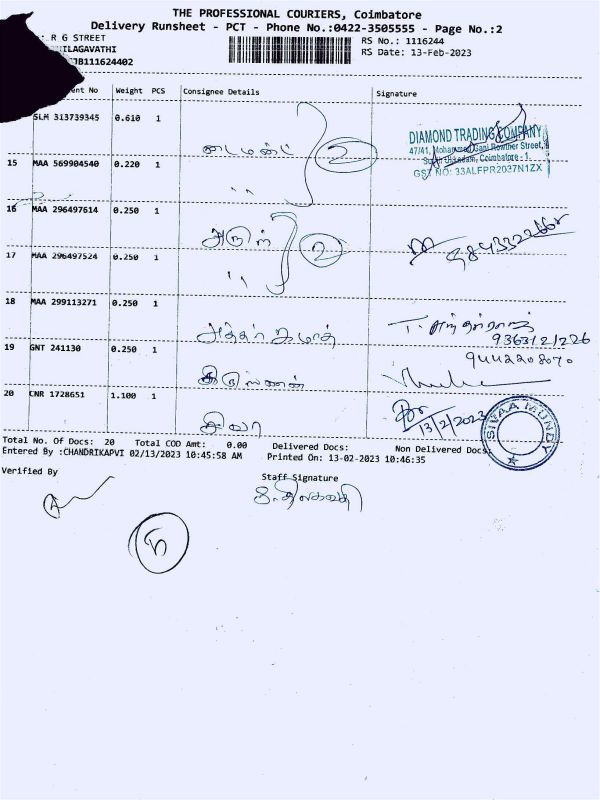 THE PROFESSIONAL COURIERS, Coimbatore
Delivery Runsheet - PCT - Phone No.:0422-3505555 - Page No.:2
R G STREET
RS No.: 1116244
RS Date: 13-Feb-2023
ILAGAVATHI
JB111624402
ent No Weight PCS Consignee Details Signature
SLM 313739345 0.610 1
டைமண்ட் 2
DIAMOND TRADING COMPANY
47/41, Mohammed Gani Rowther Street,
Coimbatore - 1.
GST NO: 33ALFPR2037N1ZX
15 MAA 569904540 0.220 1
"
16 MAA 296497614 0.250 1
அருள் 2
17 MAA 296497524 0.250 1
"
18 MAA 299113271 0.250 1
9363121226
19 GNT 241130 0.250 1
9442208070
20 CNR 1728651 1.100 1
சிவா
13/2/2023
SIVAA MUNDY
Total No. Of Docs: 20 Total COD Amt: 0.00 Delivered Docs: Non Delivered Docs:
Entered By :CHANDRIKAPVI 02/13/2023 10:45:58 AM Printed On: 13-02-2023 10:46:35
Verified By Staff Signature